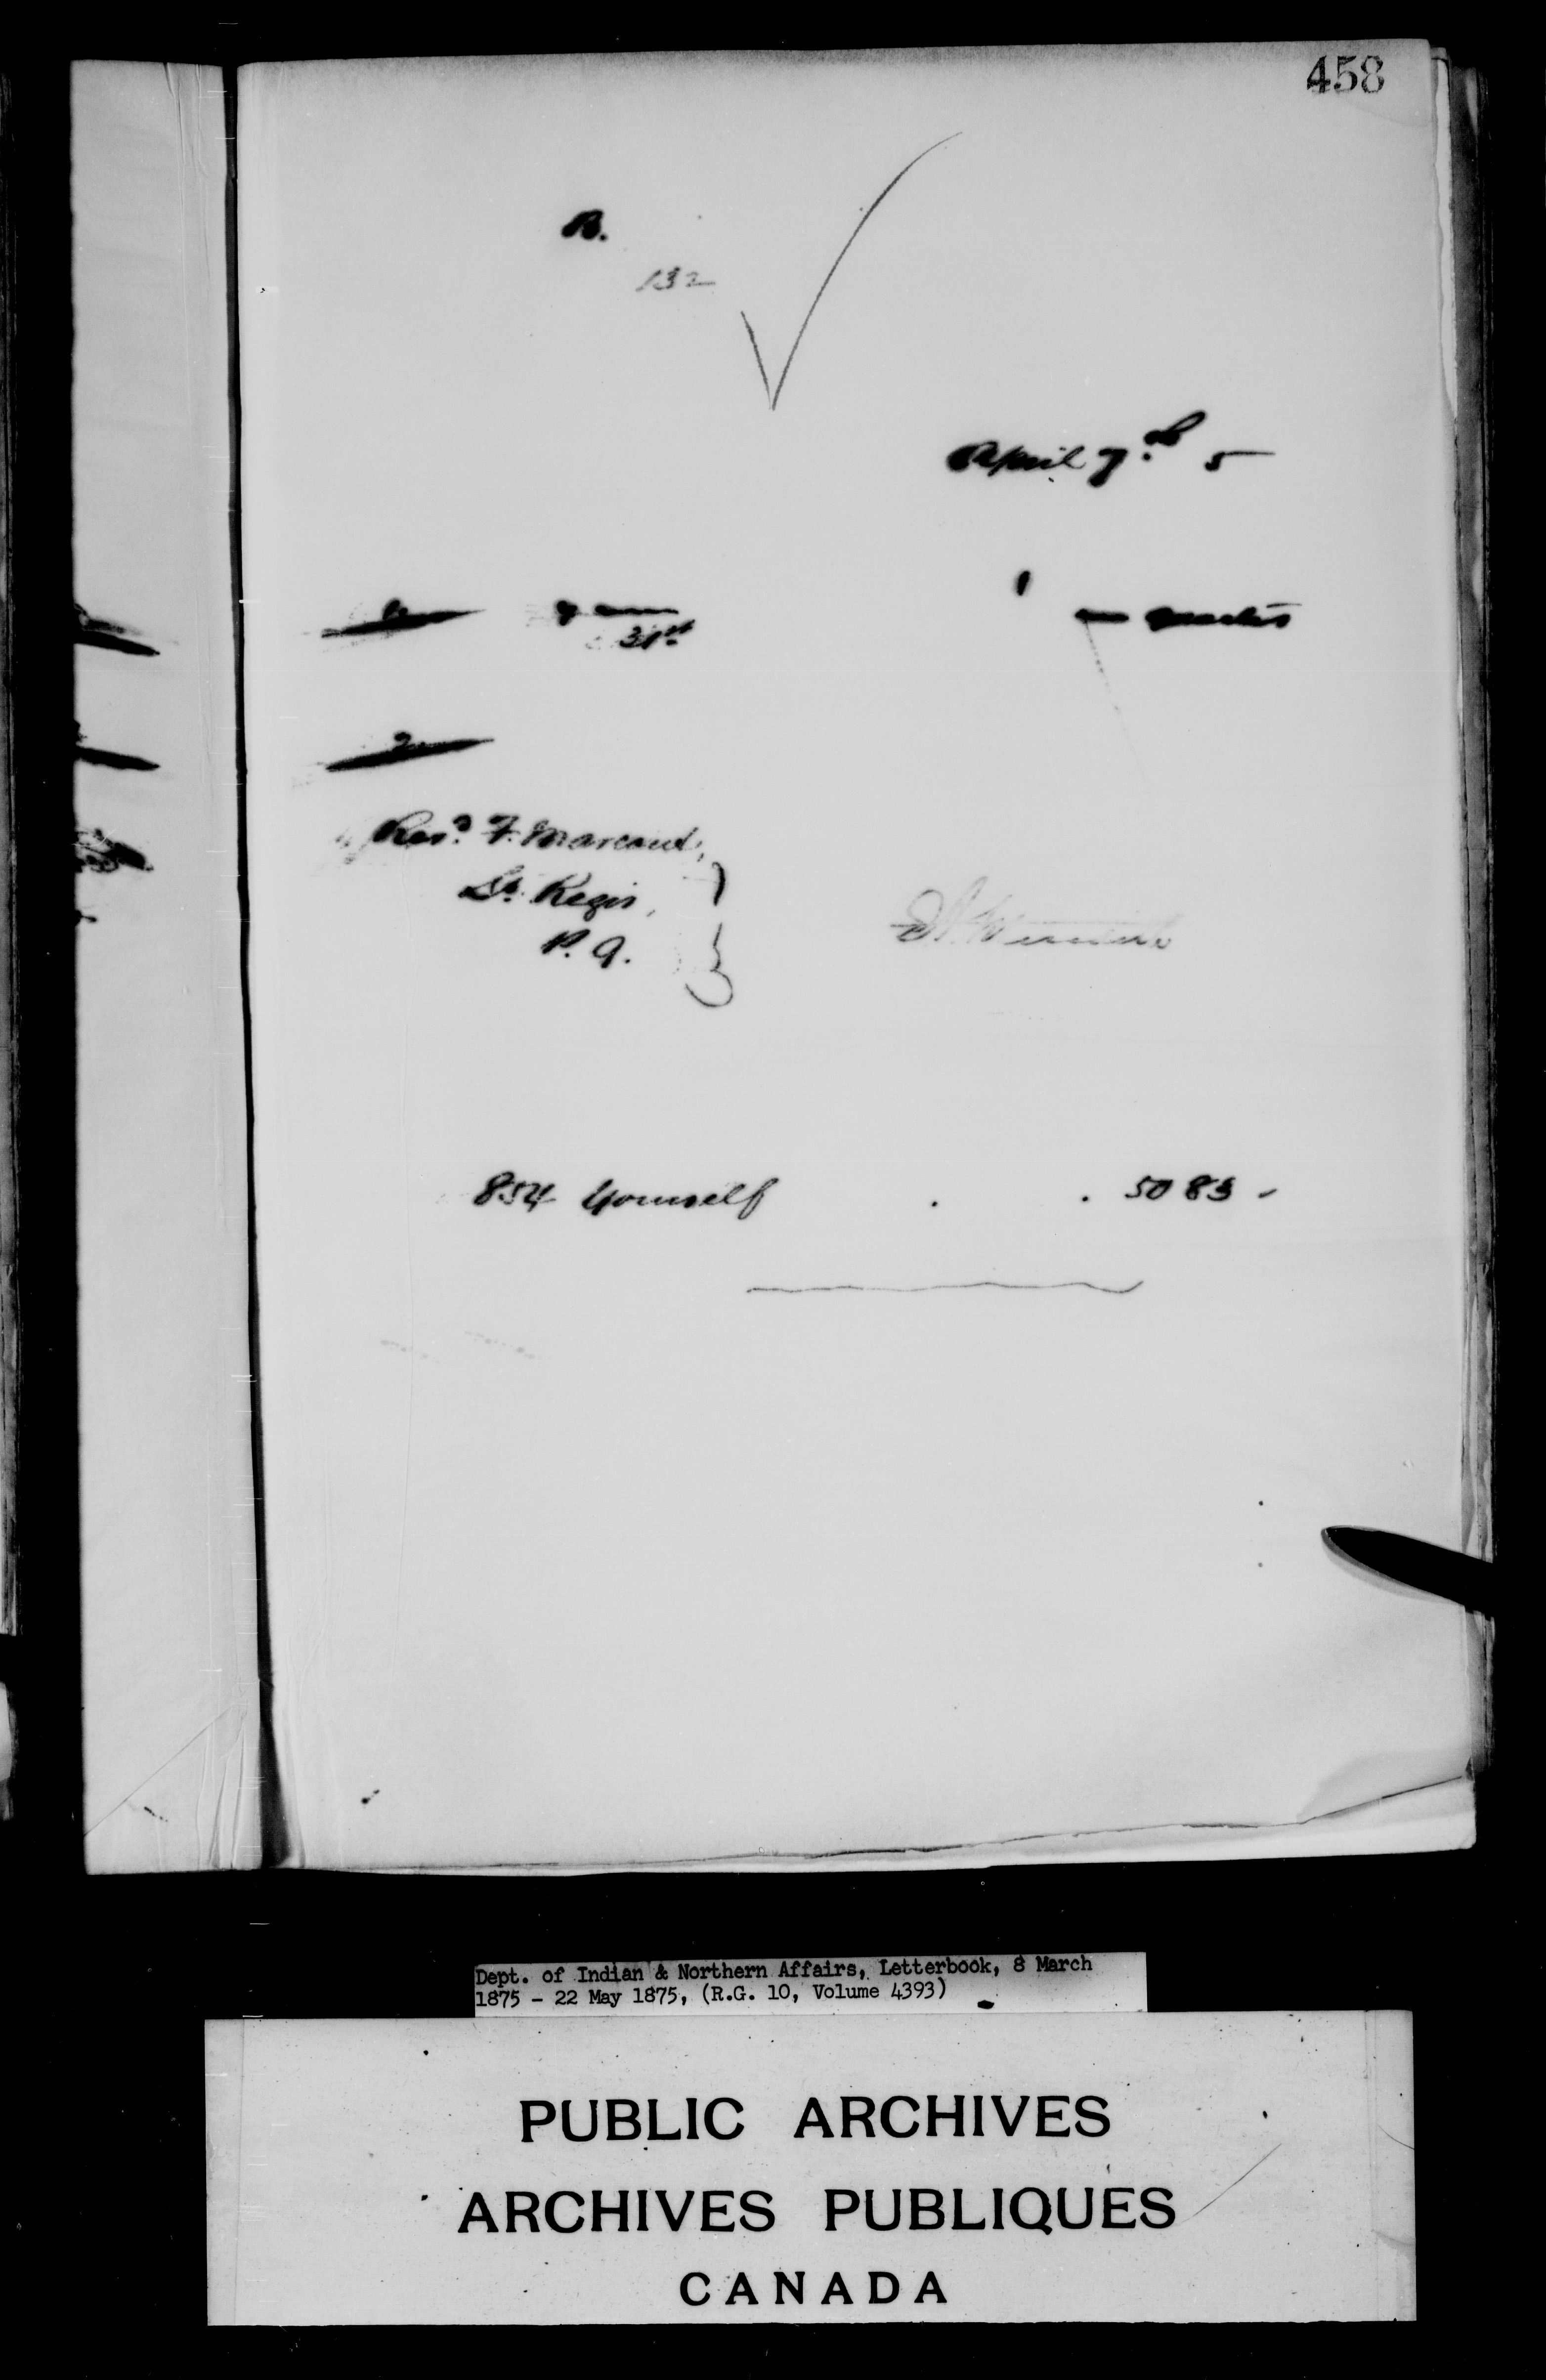 458
B.
132
April 7th 5
31st
quarter
Revd. F. Marcoux,
St. Regis,
P. Q.
854 Yourself . . 50 83 -
Dept. of Indian & Northern Affairs, Letterbook, 8 March
1875 - 22 May 1875, (R.G. 10, Volume 4393)
PUBLIC ARCHIVES
ARCHIVES PUBLIQUES
CANADA